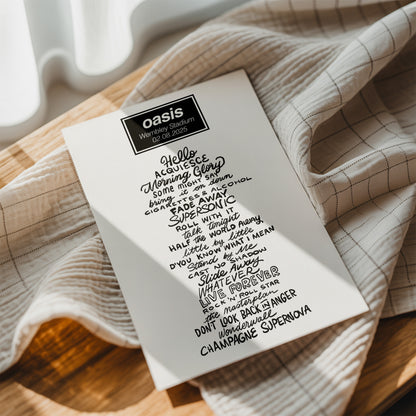 oasis
Wembley Stadium
02.08.2025
Hello
ACQUIESCE
Morning Glory
SOME MIGHT SAY
bring it on down
CIGARETTES & ALCOHOL
FADE AWAY
SUPERSONIC
ROLL WITH IT
talk tonight
HALF THE WORLD AWAY
little by little
D'YOU KNOW WHAT I MEAN
Stand by Me
CAST NO SHADOW
Slide Away
WHATEVER
LIVE FOREVER
ROCK 'N' ROLL STAR
the masterplan
DON'T LOOK BACK IN ANGER
Wonderwall
CHAMPAGNE SUPERNOVA